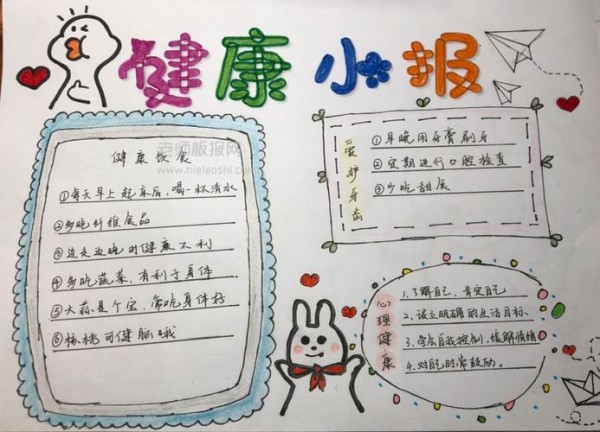 健康小报
健康饮食
①每天早上起床后,喝一杯清水
②多吃纤维食品
③边走边吃对健康不利
④多吃蔬菜,有利于身体
⑤大蒜是个宝,常吃身体好
⑥核桃可健脑哦
老师板报网
www.nielaoshi.com
爱护牙齿
①早晚用牙膏刷牙
②定期进行口腔检查
③少吃甜食
心理健康
1.了解自己,肯定自己
2.设立明确的生活目标.
3.学会自我控制,缓解情绪
4.对自己时常鼓励。